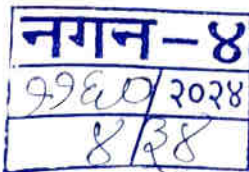 नगन-४
११६०/२०२४
४/३४